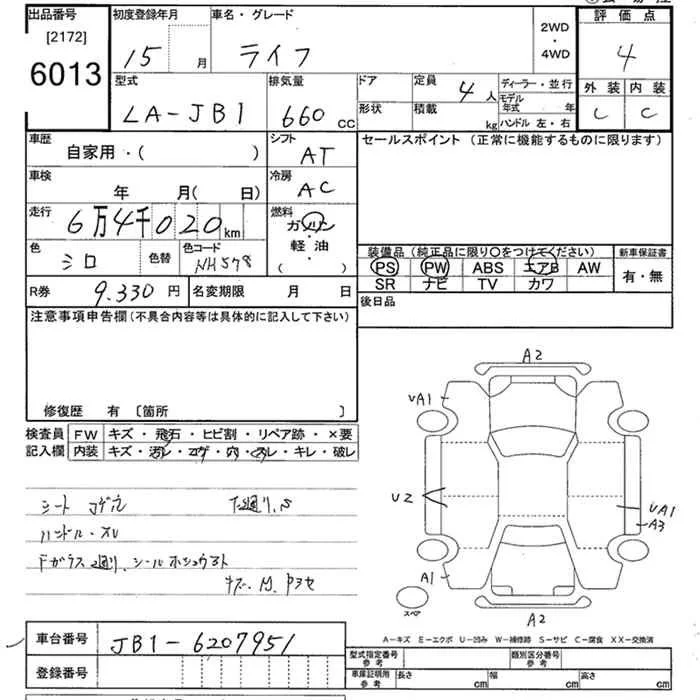 出品番号 初度登録年月 車名・グレード 2WD・4WD 評価点
[2172]
6013 15 月 ライフ 4
型式 排気量 ドア 定員 4人 ディーラー・並行 外装 内装
LA-JB1 660 cc 形状 積載 kg モデル年式 年 C C
ハンドル 左・右
車歴 シフト セールスポイント (正常に機能するものに限ります)
自家用・( ) AT
車検 冷房
年 月( 日) AC
走行 燃料
6万4千020km ガソリン・軽油・( )
色 色替 色コード
シロ NH578
装備品 (純正品に限り○をつけてください) 新車保証書
PS PW ABS エアB AW 有・無
SR ナビ TV カワ
R券 9.330 円 名変期限 月 日 後日品
注意事項申告欄 (不具合内容等は具体的に記入して下さい)
修復歴 有 〔箇所 〕
検査員 FW キズ・飛石・ヒビ割・リペア跡・×要
記入欄 内装 キズ・汚レ・コゲ・穴・スレ・キレ・破レ
シート コゲ穴
ハンドル・スレ
Fガラス
A2
UA1
U2
UA1
A3
A1
スペア
A2
A-キズ E-エクボ U-凹み W-補修跡 S-サビ C-腐食 XX-交換済
車台番号 JB1-6207951
型式指定番号 参考 類別区分番号 参考
登録番号 車庫証明用 参考 長さ cm 幅 cm 高さ cm